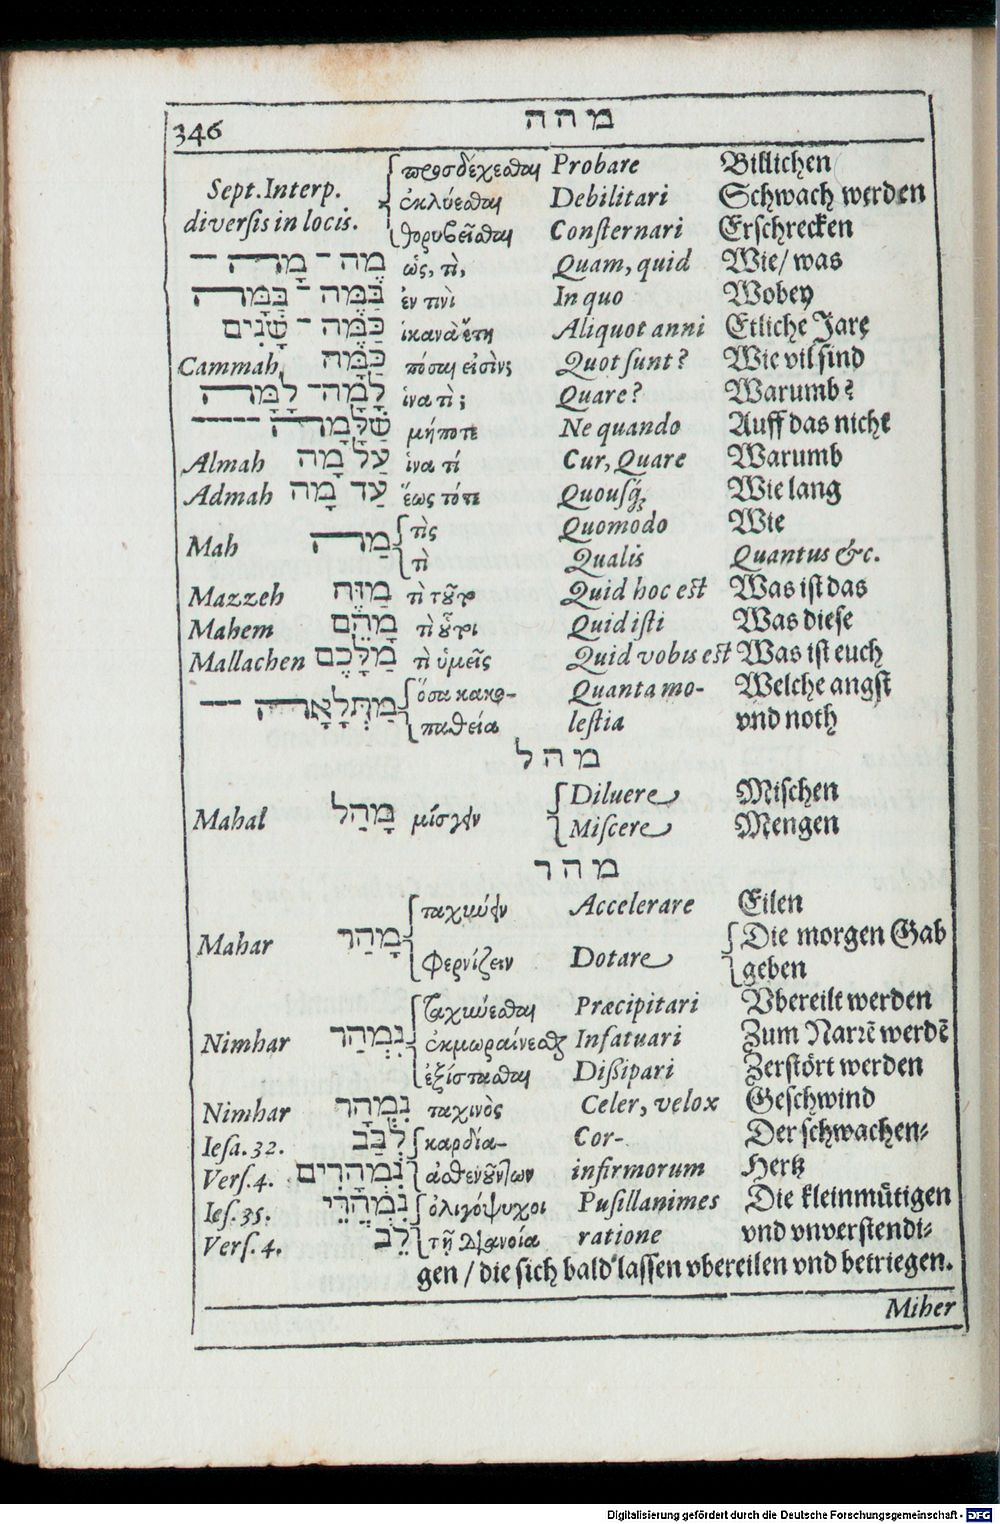 346 מהה
προσδέχεσθαι Probare Billichen
Sept. Interp. ἐκλύεσθαι Debilitari Schwach werden
diversis in locis. θορυβεῖσθαι Consternari Erschrecken
מֶה־מָה — ὡς, τὶ, Quam, quid Wie / was
בַּמֶּה־בַּמָּה ἐν τινὶ In quo Wobey
כַּמֶּה־שָׁנִים ἱκανὰ ἔτη Aliquot anni Etliche Jare
Cammah כַּמָּה πόσαι εἰσὶν; Quot sunt? Wie vil sind
לָמָה־לָמָּה ἵνα τὶ; Quare? Warumb?
שַׁלָּמָה — μήποτε Ne quando Auff das nicht
Almah עַל מָה ἵνα τί Cur, Quare Warumb
Admah עַד מָה ἕως τότε Quousq; Wie lang
Mah מַה τὶς Quomodo Wie
τὶ Qualis Quantus &c.
Mazzeh מַזֶּה τὶ τοῦτο Quid hoc est Was ist das
Mahem מָהֵם τὶ οὗτοι Quid isti Was diese
Mallachen מַלָּכֶם τὶ ὑμεῖς Quid vobis est Was ist euch
מַתְּלָאָה — ὅσα κακο- Quanta mo- Welche angst
παθεία lestia vnd noth
מהל
Mahal מָהַל μίσγειν Diluere Mischen
Miscere Mengen
מהר
ταχύνειν Accelerare Eilen
Mahar מָהַר φερνίζειν Dotare Die morgen Gab
geben
ταχύνεσθαι Præcipitari Vbereilt werden
Nimhar נִמְהַר ἐκμωραίνεσθαι Infatuari Zum Narrē werdē
ἐξίστασθαι Dißipari Zerstört werden
Nimhar נִמְהָר ταχινὸς Celer, velox Geschwind
Iesa. 32. לְבַב καρδία- Cor- Der schwachen-
Vers. 4. נִמְהָרִים ἀσθενούντων infirmorum Hertz
Ies. 35. נִמְהֲרֵי ὀλιγόψυχοι Pusillanimes Die kleinmütigen
Vers. 4. לֵב τῇ διανοίᾳ ratione vnd vnverstendi-
gen / die sich bald lassen vbereilen vnd betriegen.
Miher
Digitalisierung gefördert durch die Deutsche Forschungsgemeinschaft - DFG